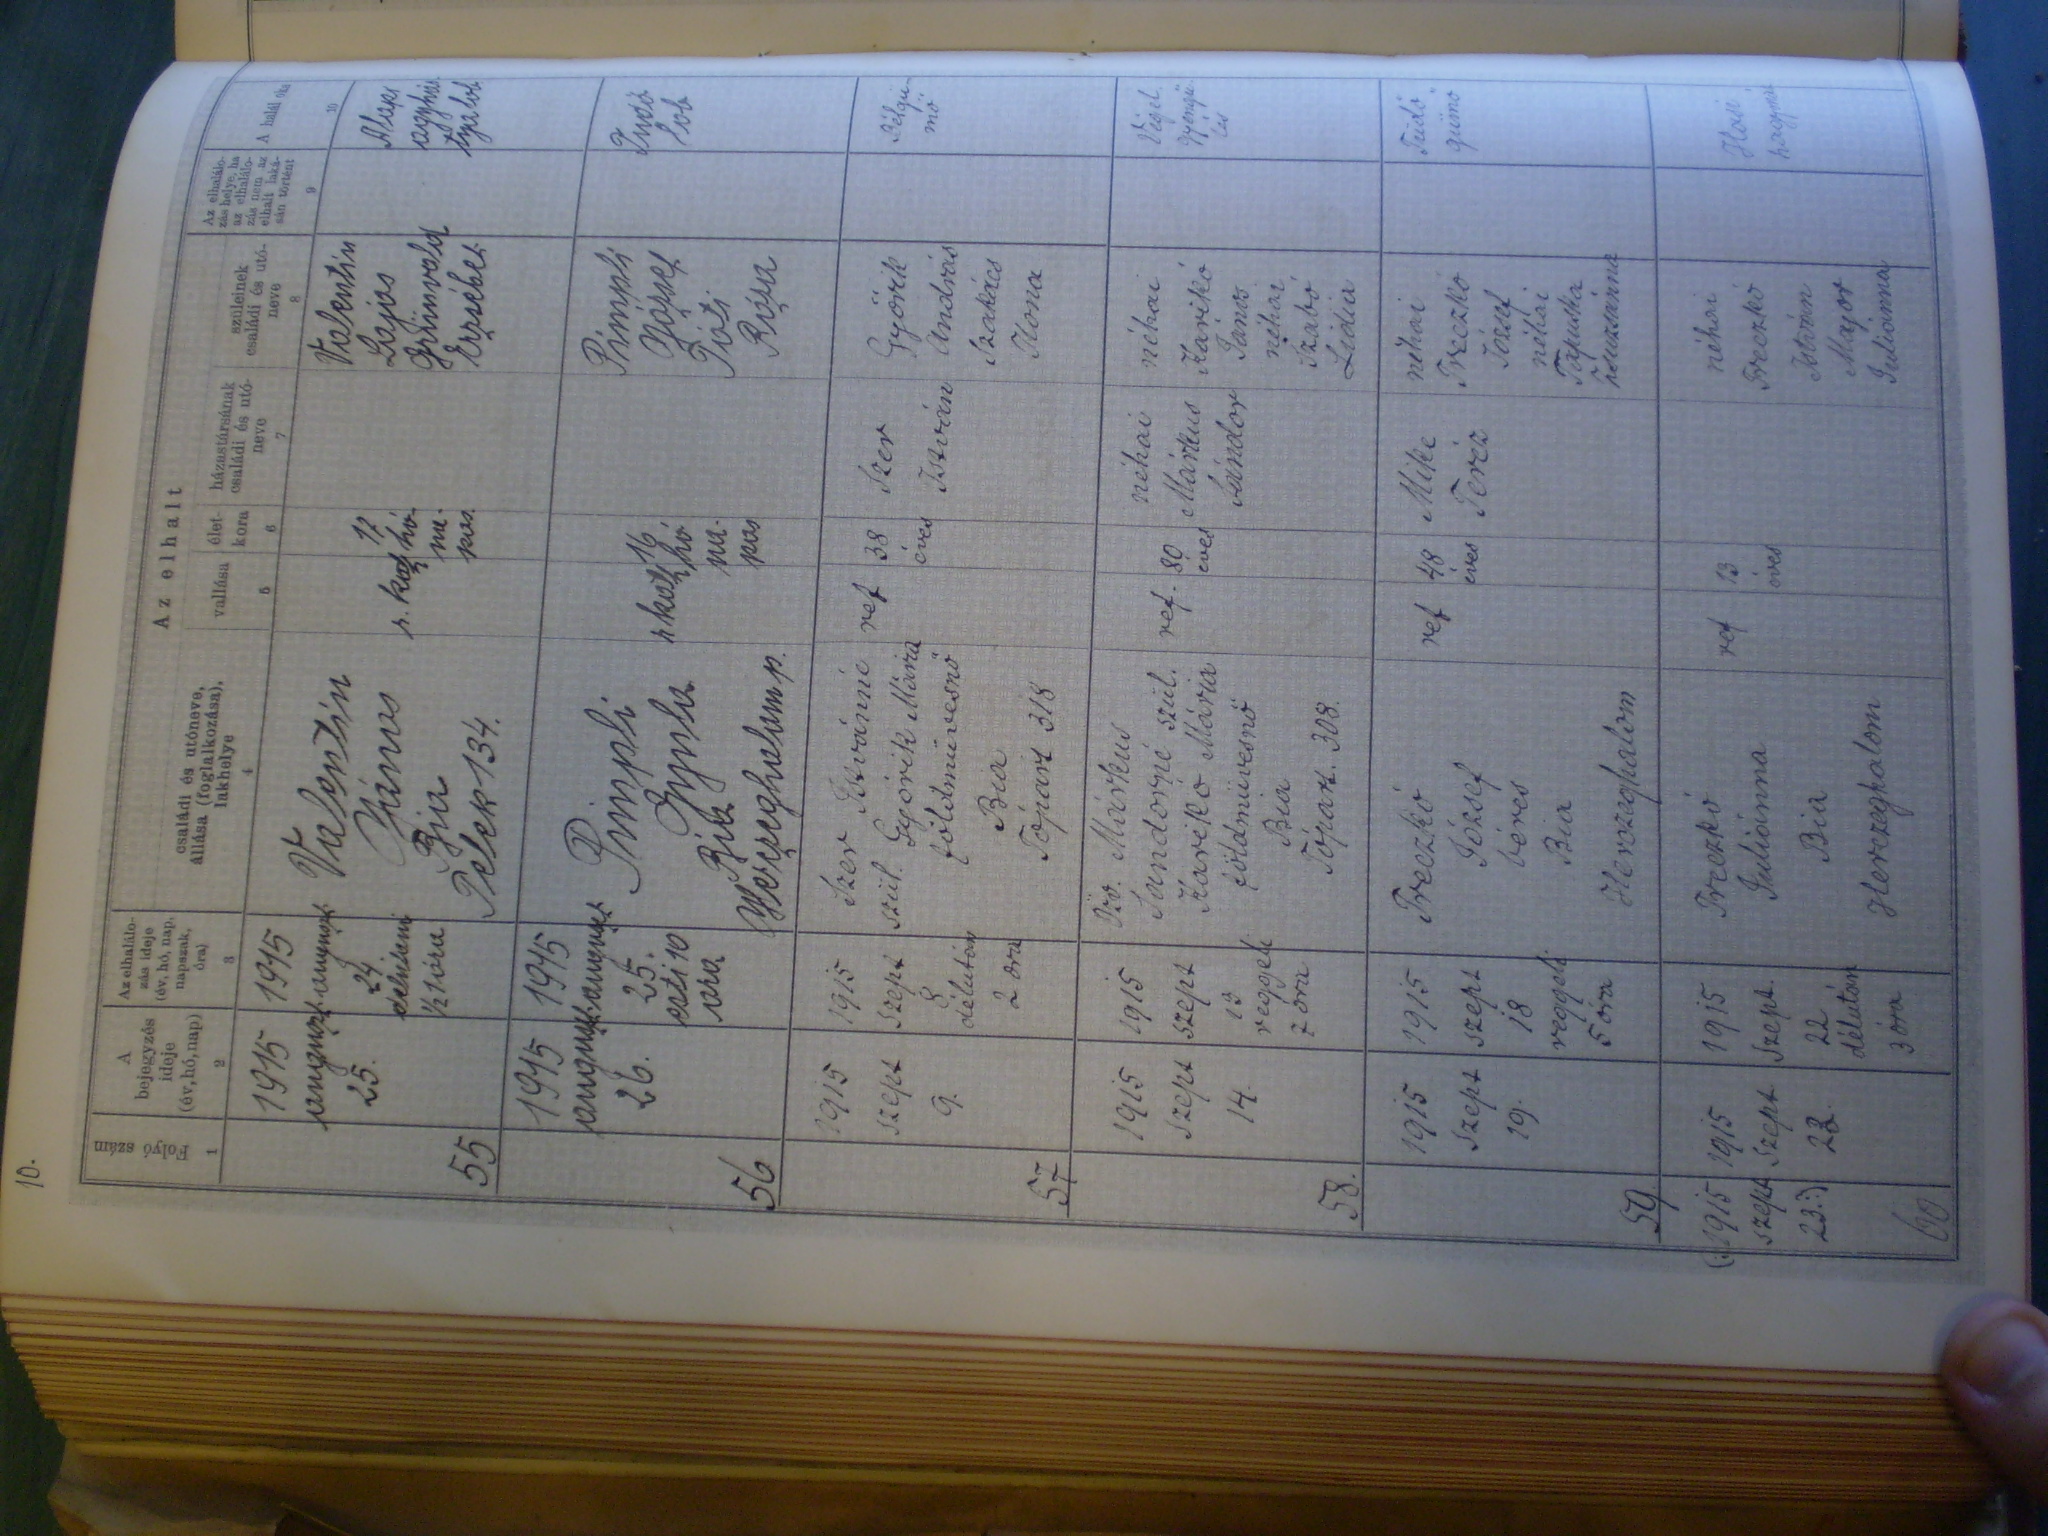 10.
Az elhalt
Folyó szám
A bejegyzés ideje (év, hó, nap)
Az elhalálozás ideje (év, hó, nap, napszak, óra)
családi és utóneve, állása (foglalkozása), lakhelye
vallása
életkora
házastársának családi és utóneve
szüleinek családi és utóneve
Az elhalálozás helye, ha az elhalálozás nem az elhalt lakásán történt
A halál oka
1 2 3 4 5 6 7 8 9 10
55
1915
augusz.
25.
1915
auguszt
24
délelőtti
½ 1 óra
Valentin
János
Bia
Telek 134.
r. kath
17
hó-
na-
pos
Valentin
Lajos
Grünvald
Erzsébet
56
1915
auguszt.
26.
1915
auguszt
25.
esti 10
óra
Pimpli
Gyula
Bia
Herczeghalom p.
r kath
16
hó
na-
pos
Pimpli
József
Tóti
Róza
Tüdő
lob
57
1915
szept
9.
1915
szept
8
délután
2 óra
Szer Istvánné
szül. Győrik Mária
földmüvesnő
Bia
Tópart 318
ref
38
éves
Szer
István
Győrik
András
Szakács
Ilona
Bélgü-
mő
58.
1915
szept
14.
1915
szept
13
reggeli
7 óra
Özv. Márkus
Sándorné szül.
Harikó Mária
földmüvesnő
Bia
Tópart. 308.
ref.
80
éves
néhai
Márkus
Sándor
néhai
Harikó
János
néhai
Szabó
Lidia
Végel.
gyengü-
lés
59
1915
szept
19.
1915
szept
18
reggeli
5 óra
Treczkó
József
béres
Bia
Herczeghalom
ref
48
éves
Mike
Teréz
néhai
Treczkó
József
néhai
Tapuska
Zsuzsánna
Tüdő
gümő
60
(:1915
szept
23:)
1915
Szept
23.
1915
Szept.
22
délután
3 óra
Treczkó
Juliánna
Bia
Herczeghalom
ref
13
éves
néhai
Treczkó
István
Major
Juliánna